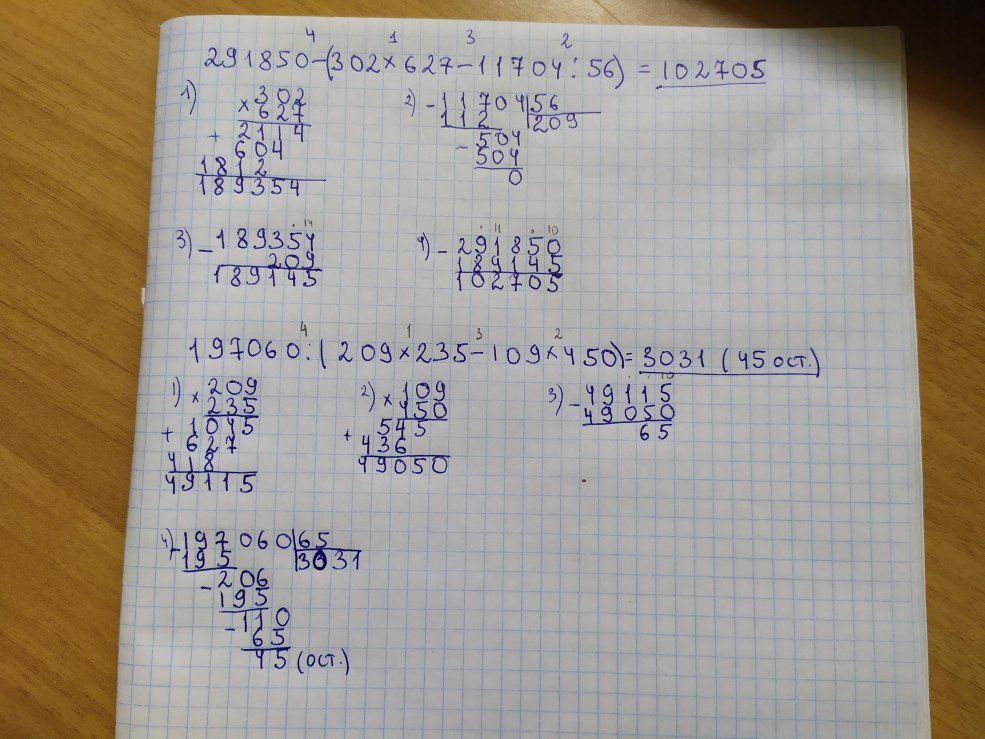 4 1 3 2
291850-(302×627-11704:56) = 102705
1) 302
× 627
+ 2114
604
1812
189354
2) - 11704 | 56
112 209
- 504
504
0
14
3) - 189354
209
189145
11 10
4) - 291850
189145
102705
4 1 3 2
197060:(209×235-109×450)=3031 (45 ост.)
1) × 209
235
+ 1045
627
418
49115
2) × 109
450
+ 545
436
49050
10
3) - 49115
49050
65
4) - 197060 | 65
195 3031
- 206
195
- 110
65
45 (ост.)